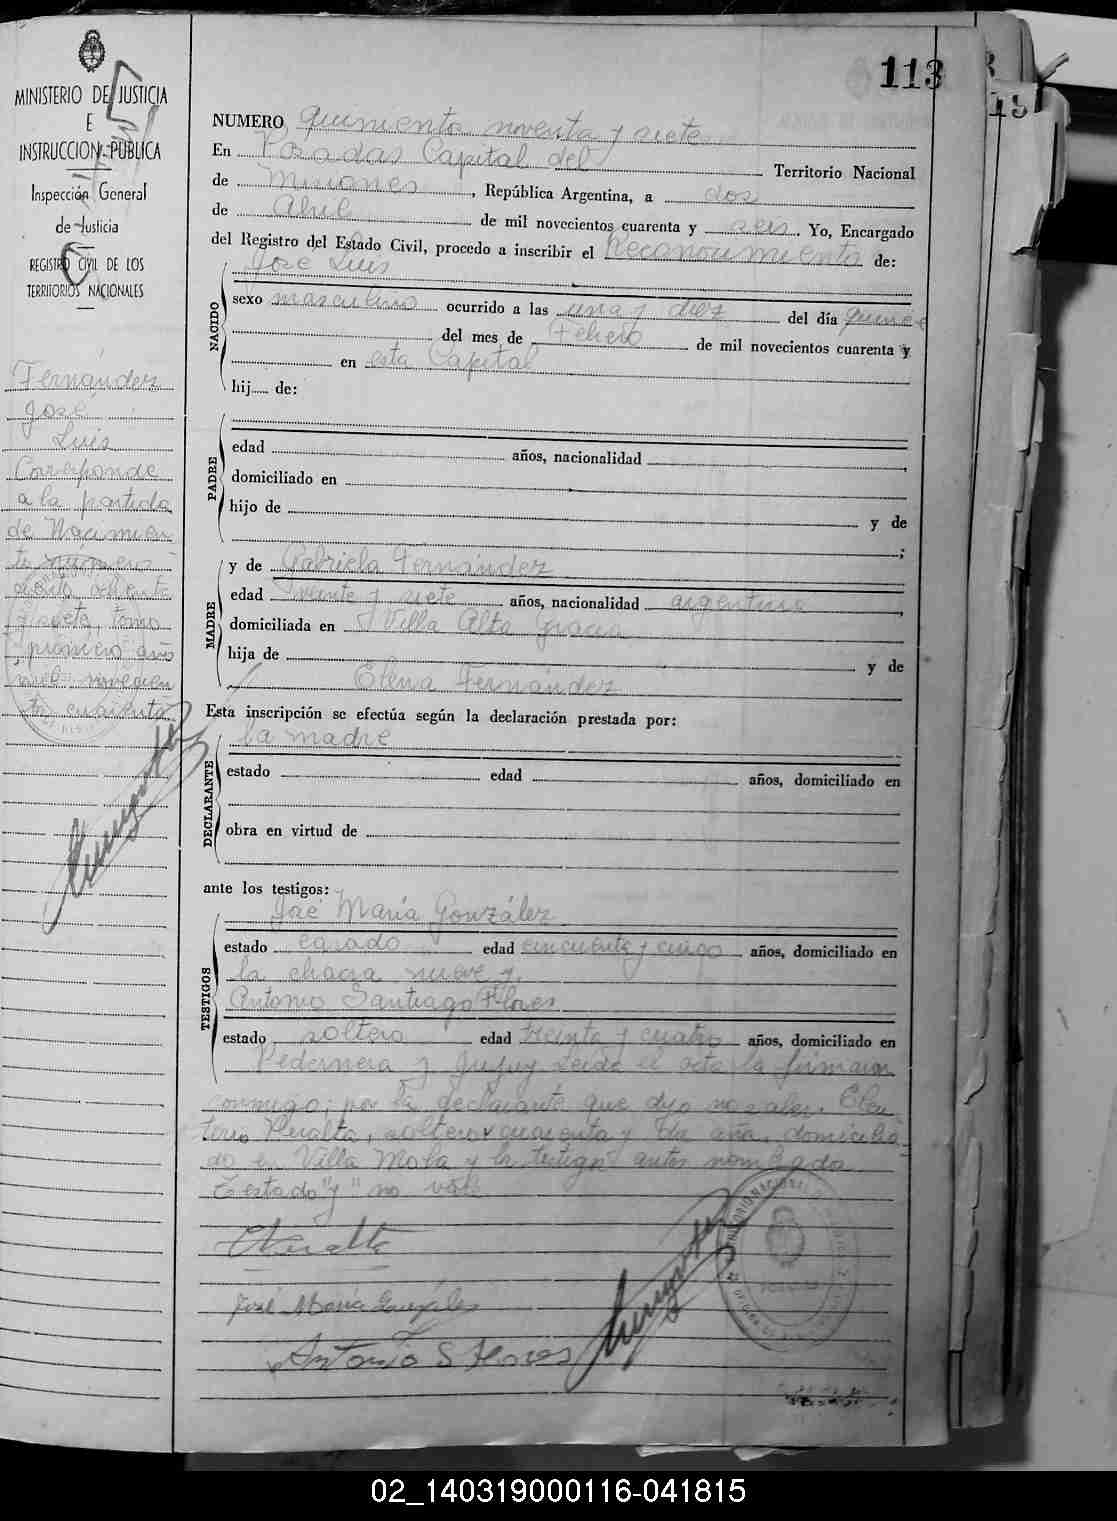 MINISTERIO DE JUSTICIA
E
INSTRUCCION PUBLICA
Inspección General
de Justicia
REGISTRO CIVIL DE LOS
TERRITORIOS NACIONALES
Fernández
José
Luis
Corresponde
a la partida
de Nacimien
to número
ochenta
y siete, tomo
primero año
mil novecien
tos cuarenta
113
NUMERO quinientos noventa y siete
En Posadas Capital del Territorio Nacional
de Misiones, República Argentina, a dos
de Abril de mil novecientos cuarenta y seis. Yo, Encargado
del Registro del Estado Civil, procedo a inscribir el Reconocimiento de:
José Luis
NACIDO
sexo masculino ocurrido a las una y diez del día quince
del mes de Febrero de mil novecientos cuarenta y
en esta Capital
hij de:
PADRE
edad años, nacionalidad
domiciliado en
hijo de y de
MADRE
y de Gabriela Fernández
edad veinte y siete años, nacionalidad argentina
domiciliada en Villa Alta Gracia
hija de y de
Elena Fernández
Esta inscripción se efectúa según la declaración prestada por:
la madre
DECLARANTE
estado edad años, domiciliado en
obra en virtud de
ante los testigos:
José María González
TESTIGOS
estado casado edad cincuenta y cinco años, domiciliado en
la chacra nueve y
Antonio Santiago Flores
estado soltero edad treinta y cuatro años, domiciliado en
Pedernera y Jujuy Leída el acta la firmaron
conmigo; por la declarante que dijo no saber. Eleu
terio Peralta, soltero, cuarenta y dos años, domicilia
do en Villa Mola y los testigos antes nombrados
Testado "y" no vale
EPeralta
José María González
Antonio S Flores
02_140319000116-041815